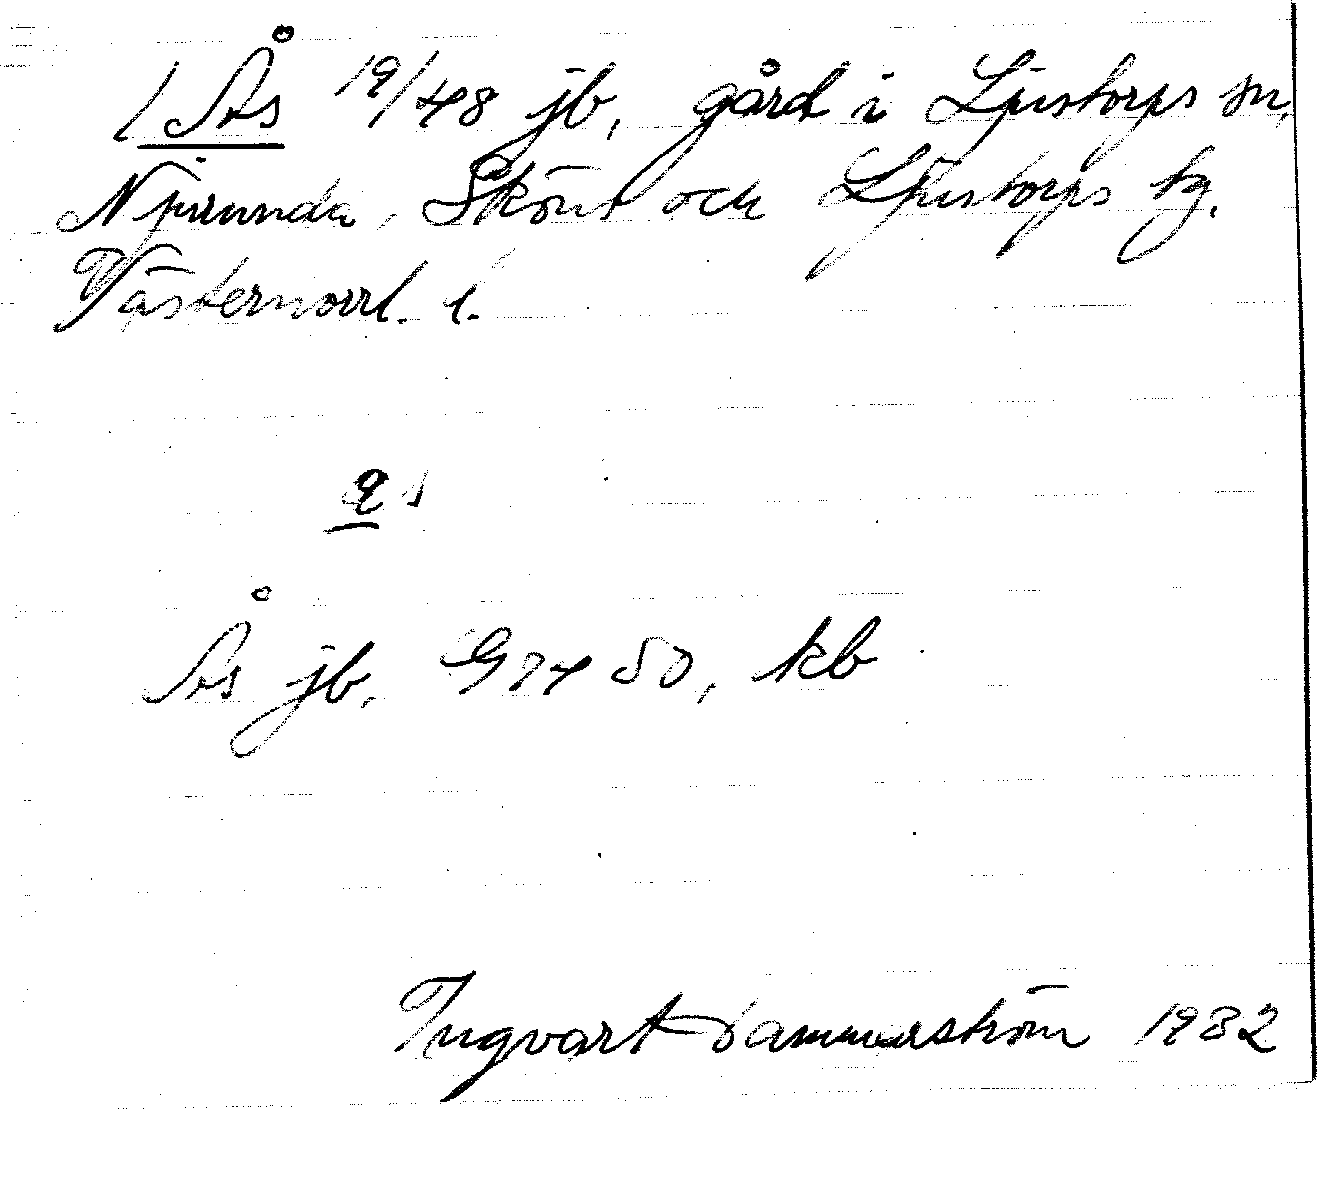 1 Ås 19/48 jb, gård i Ljustorps sn,
Njurunda, Sköns och Ljustorps tg.
Västernorrl. l.
Ås jb. G 50, kb
Ingvart 1932